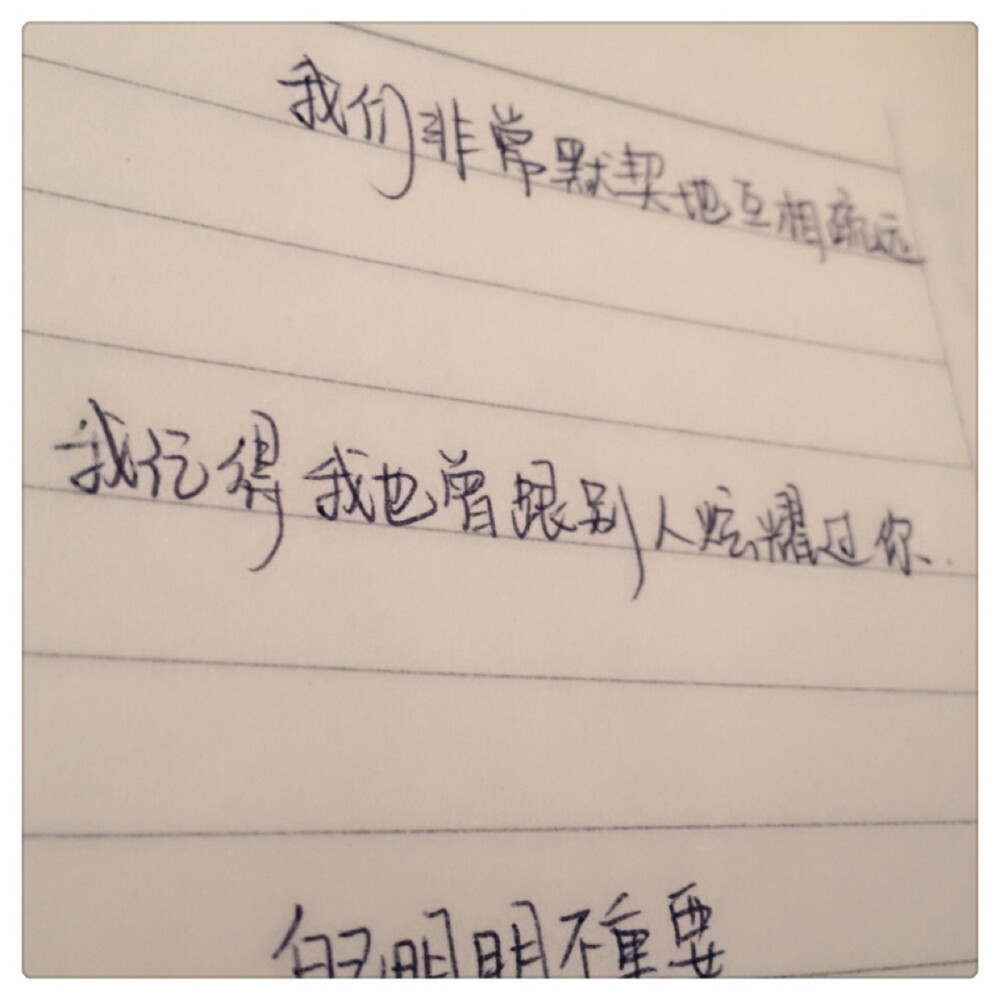 我们非常默契地互相疏远
我记得我也曾跟别人炫耀过你.
明明不重要